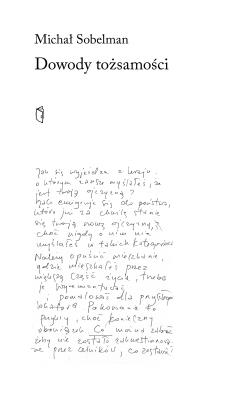 Michał Sobelman
Dowody tożsamości
Jak się wyjeżdża z kraju,
o którym zawsze myślałeś, że
jest twoją ojczyzną?
Jak emigruje się do państwa,
które już za chwilę stanie
się twoją nową ojczyzną,
choć nigdy o nim nie
myślałeś w takich kategoriach
Należy opuścić mieszkanie,
gdzie mieszkałeś przez
większą część życia, trzeba
je wyremontować
i pomalować dla przyszłego
lokatora. Pokonana to
przykry, choć konieczny
obowiązek. Co można zabrać
żeby nie zostało zakwestionowa-
ne przez celników, co zostawić